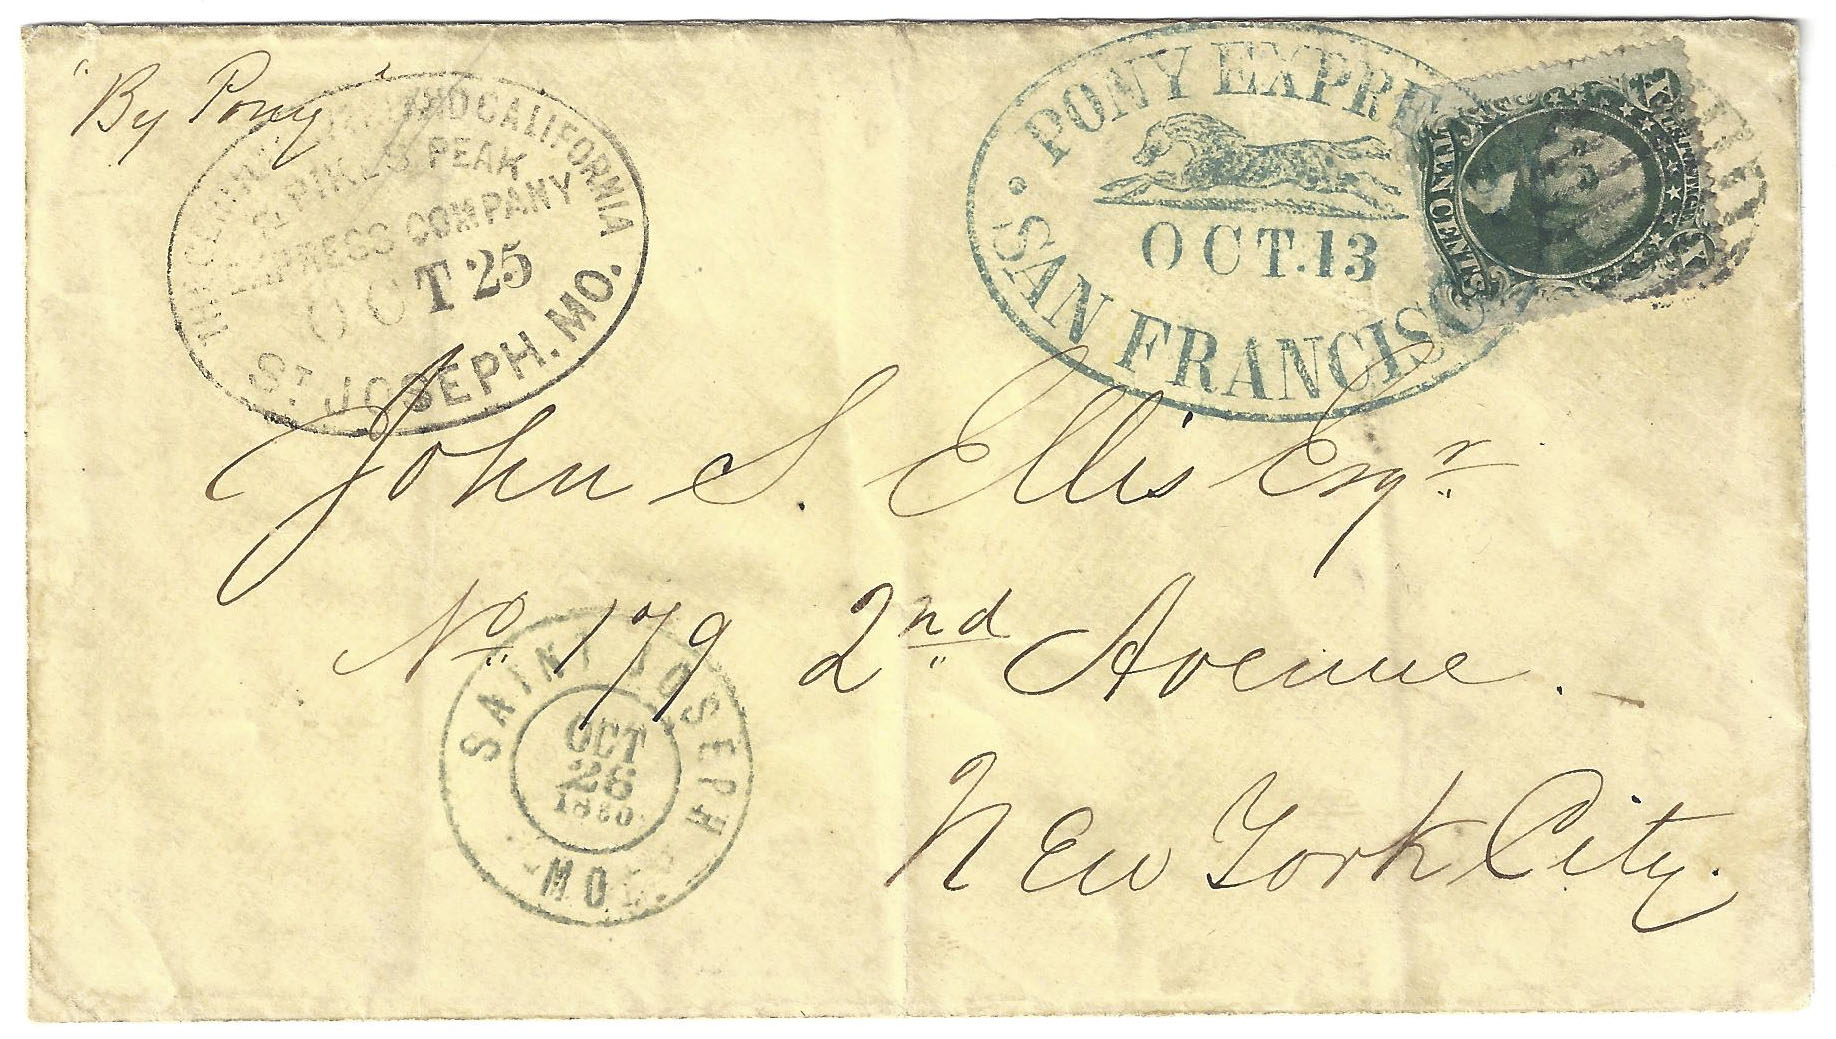 "By Pony"
THE CENTRAL OVERLAND CALIFORNIA
& PIKES PEAK
EXPRESS COMPANY
OCT 25
ST JOSEPH. MO.
PONY EXPRE
OCT. 13
SAN FRANCISCO
TEN CENTS
X
X
John S. Ellis Esqr
No 179 2nd Avenue.
New York City.
SAINT JOSEPH
OCT
26
1860
MO.